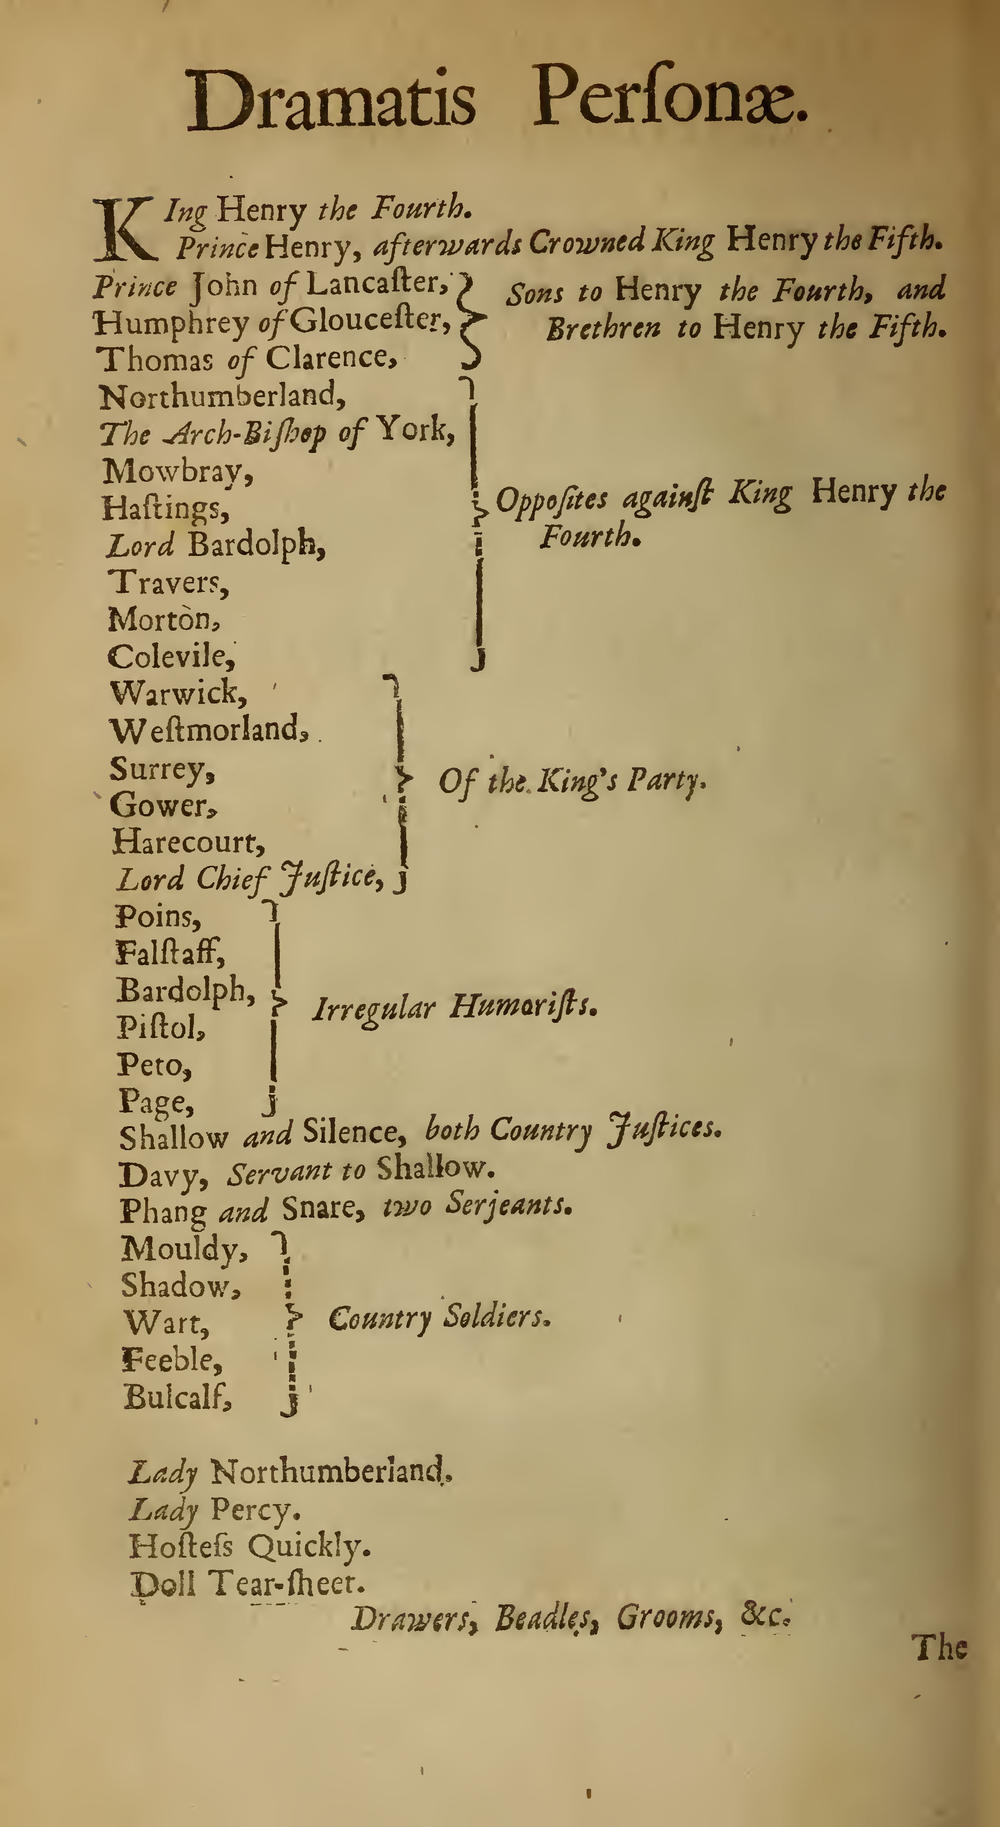 Dramatis Perſonæ.
KIng Henry the Fourth.
Prince Henry, afterwards Crowned King Henry the Fifth.
Prince John of Lancaſter,
Humphrey of Glouceſter,
Thomas of Clarence,
Sons to Henry the Fourth, and
Brethren to Henry the Fifth.
Northumberland,
The Arch-Biſhop of York,
Mowbray,
Haſtings,
Lord Bardolph,
Travers,
Morton,
Colevile,
Oppoſites againſt King Henry the
Fourth.
Warwick,
Weſtmorland,
Surrey,
Gower,
Harecourt,
Lord Chief Juſtice,
Of the King's Party.
Poins,
Falſtaff,
Bardolph,
Piſtol,
Peto,
Page,
Irregular Humoriſts.
Shallow and Silence, both Country Juſtices.
Davy, Servant to Shallow.
Phang and Snare, two Serjeants.
Mouldy,
Shadow,
Wart,
Feeble,
Bulcalf,
Country Soldiers.
Lady Northumberland.
Lady Percy.
Hoſteſs Quickly.
Doll Tear-ſheet.
Drawers, Beadles, Grooms, &c.
The